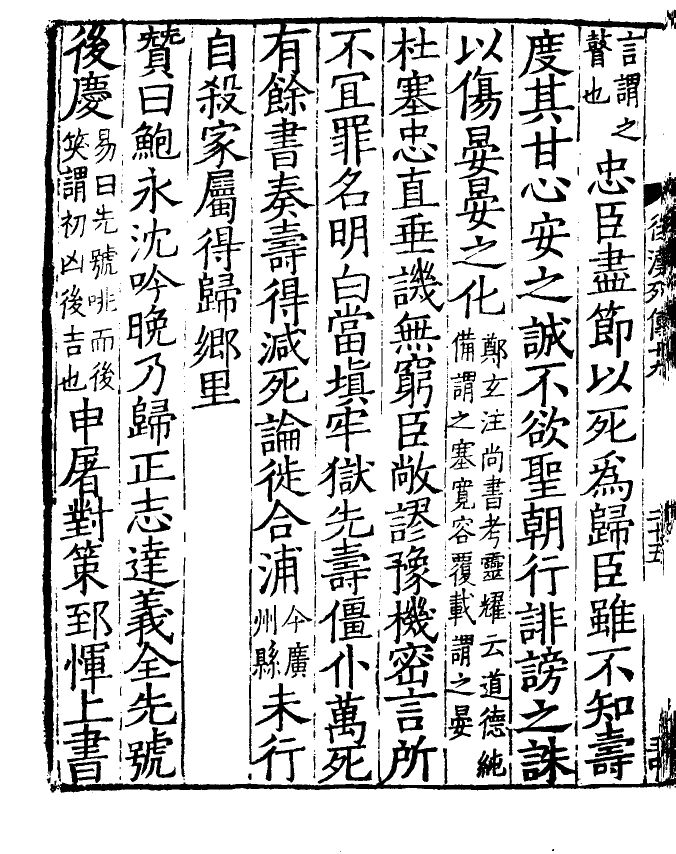 言謂之瞽也忠臣盡節以死爲歸臣雖不知壽
度其甘心安之誠不欲聖朝行誹謗之誅
以傷晏晏之化鄭玄注尚書考靈耀云道德純備謂之塞寛容覆載謂之晏
杜塞忠直垂譏無窮臣敞謬豫機密言所
不宜罪名明白當塡牢獄先壽僵仆萬死
有餘書奏壽得減死論徙合浦今廣州縣未行
自殺家屬得歸鄉里
贊曰鮑永沈吟晚乃歸正志達義全先號
後慶易曰先號咷而後笑謂初凶後吉也申屠對策郅惲上書